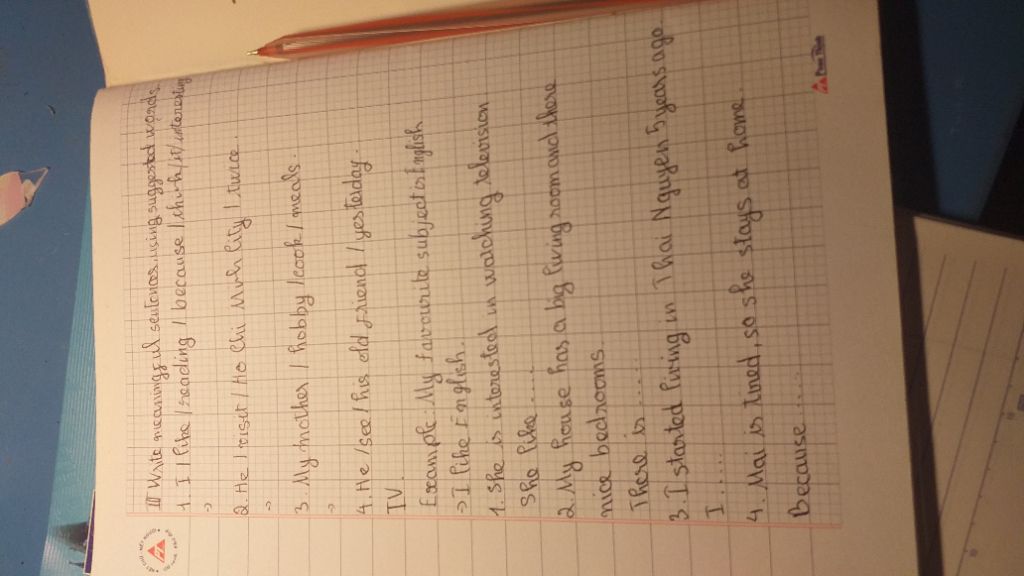 III Write meaningful sentences using suggested words.
1. I / like / reading / because / th-h / it / interesting
->
2. He / visit / Ho Chi Minh City / twice.
->
3. My mother / hobby / cook / meals.
->
4. He / see / his old friend / yesterday.
IV.
Example: My favourite subject is English
-> I like English.
1. She is interested in watching television
She like .....
2. My house has a big living room and there
nice bedrooms.
There is .....
3. I started living in Thai Nguyen 5 years ago
I .....
4. Mai is tired, so she stays at home.
Because .....